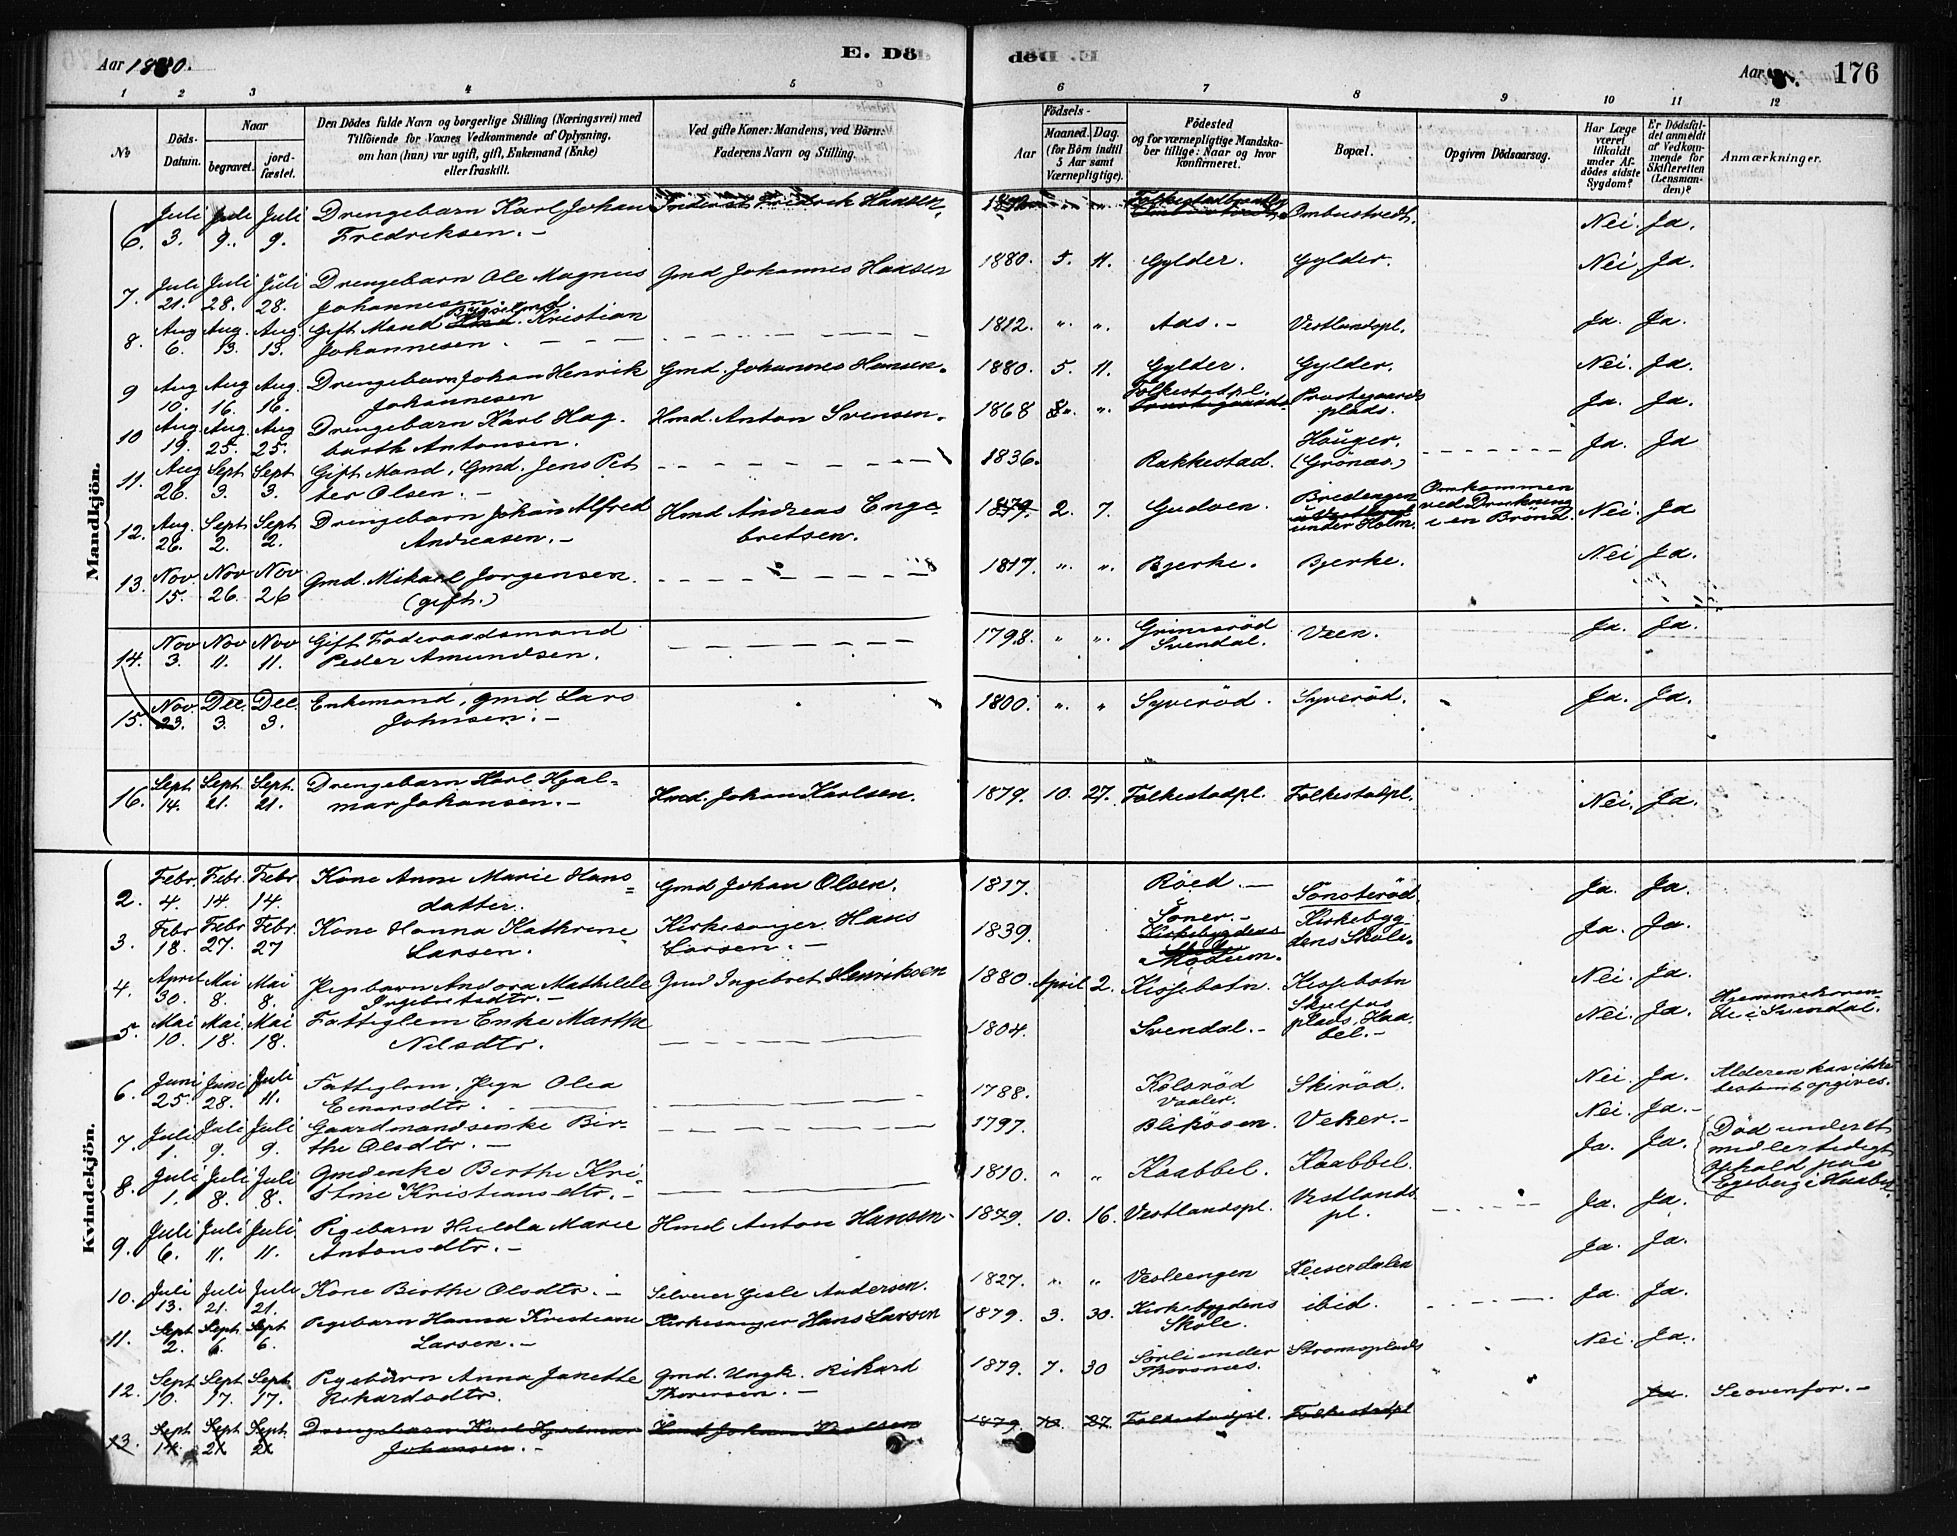 Aar 1880.
E. Dö
Aar
176
1 2 3 4 5 6 7 8 9 10 11 12
No
Döds-Datum.
Naar
begravet.
jord-fæstet.
Den Dödes fulde Navn og borgerlige Stilling (Næringsvei) med
Tilföiende for Voxnes Vedkommende af Oplysning,
om han (hun) var ugift, gift, Enkemand (Enke)
eller fraskilt.
Ved gifte Koner: Mandens, ved Börn:
Faderens Navn og Stilling.
Födsels-
Aar
Maaned. Dag.
(for Börn indtil
5 Aar samt
Værnepligtige).
Födested
og for værnepligtige Mandska-
ber tillige: Naar og hvor
konfirmeret.
Bopæl.
Opgiven Dödsaarsag.
Har Læge
været
tilkaldt
under Af-
dödes sidste
Sygdom?
Er Dödsfal-
det anmeldt
af Vedkom-
mende for
Skifteretten
(Lensman-
den)?
Anmærkninger.
Mandkjön.
6. Juli 3. Juli 9. Juli 9. Drengebarn Karl Johan Fredriksen. - Fredrik Hansen. Ombustvedt. Nei. Ja.
7. Juli 21. Juli 28. Juli 28. Drengebarn Ole Magnus Johannesen. Gmd Johannes Hansen 1880. 5. 11. Gylder. Gylder. Nei. Ja.
8. Aug 6. Aug. 13. Aug 13. Gift Mand Kristian Johannesen. 1812. " " Aas. - Vestlandspl. Ja. Ja.
9 Aug 10. Aug 16. Aug. 16. Drengebarn Johan Henrik Johannesen Gmd. Johannes Hansen. 1880. 5. 11. Gylder. Gylder. Nei. Ja.
10 Aug. 19. Aug. 25. Aug 25. Drengebarn Karl Hag-barth Antonsen. Hmd. Anton Svensen. 1868 " " Folkestadpl. Prestegaards plads. Ja. Ja.
11. Aug 26. Sept 3. Sept 3. Gift Mand, Gmd. Jens Petter Olsen. - 1836. Rakkestad. Hauger. (Grönæs.) Ja. Ja
12. Aug. 26. Sept 2. Sept 2. Drengebarn Johan Alfred Andreasen. - Hmd Andreas Engebretsen. 1879. 2. 7. Gudven. Bredengen under Holm. Omkommen ved Drukning i en Brönd. Nei. Ja
13. Nov 15. Nov 26. Nov 26 Gmd. Mikael Jorgensen. (gift.) 1817. " " Bjerke. Bjerke. Nei Ja.
14. Nov 3. Nov 11. Nov 11. Gift Föderaadsmand Peder Amundsen. 1798. " " Grimsröd Svendal. Veen. Ja. Ja.
15. Nov. 23. Dec. 3. Dec. 3. Enkemand, Gmd Lars Johnsen. - 1800. " " Syveröd. Syveröd. Ja. Ja.
16. Sept 14. Sept. 21. Sept. 21. Drengebarn Karl Hjalmar Johansen. - Hmd. Johan Karlsen. 1879. 10. 27. Folkestadpl. Folkestadpl. Nei. Ja.
Kvindekjön.
2. Febr. 4. Febr. 14. Febr 14. Kone Anne Marie Hansdatter. Gmd Johan Olsen. 1817. Röed. - Sonsteröd. Ja. Ja.
3. Febr 18. Febr 27. Febr. 27 Kone Hanna Kathrine Larsen. Kirkesanger Hans Larsen. - 1839. Soner. - Modum. Kirkebygdens Skole. Ja. Ja.
4. April 30. Mai 8. Mai 8. Pigebarn Andora Mathilde Ingebretsdtr. - Gmd Ingebret Henriksen 1880. April 2. Kissebotn. Kissebotn Nei. Ja.
5. Mai 10. Mai 18. Mai 18. Fattiglem Enke Marthe Nilsdtr. 1804. Svendal. - plads, Kaabel. - Nei. Ja. Hjemmehörende i Svendal.
6. Juni 25. Juni 28. Juli 11. Fattiglem, Pige Olea Einarsdtr. 1788. Kolsröd Vaaler. Skiröd. Nei. Ja. Alderen kan ikke bestemt opgives.
7. Juli 1. Juli 9. Juli 9. Gaardmandsenke Birthe Olsdtr. - 1797. Bliksøen. Veker. - Nei. Ja. -
8. Juli 1. Juli 8. Juli 8. Gmdenke Birthe Kristine Kristiansdtr. - 1810. " " Kaabbel. Kaabbel. Ja. Ja. Död under et midlertidigt Ophold paa Egeberg i Kaabel.
9. Juli 6. Juli 11. Juli 11. Pigebarn Hulda Marie Antonsdtr. - Hmd Anton Hansen. 1879. 10. 16. Vestlandspl. Vestlands pl. Ja. Ja.
10. Juli 13. Juli 21. Juli 21. Kone Birthe Olsdtr. - Selveier Gisle Andersen. 1827. " " Vesleengen Keiserdalen Ja. Ja.
11. Sept 2. Sept. 6. Sept 6. Pigebarn Hanna Kristiane Larsen. - Kirkesanger Hans Larsen 1879. 3. 30. Kirkebygdens Skole. ibid. Ja. Ja.
12. Sept 10. Sept 17. Sept. 17. Pigebarn Anna Janette Rikardsdtr. Gmd. Ungk. Rikard Thoresen. - 1879. 7. 30 Sörli under Thorsnæs. Stromsplads Nei. Ja.
13. Sept 14. Sept 21 Sept. 21 Drengebarn Karl Hjalmar Johansen. - Hmd Johan Karlsen 1879 10. 27. Folkestadpl. Folkestadpl Ja. Se ovenfor. -